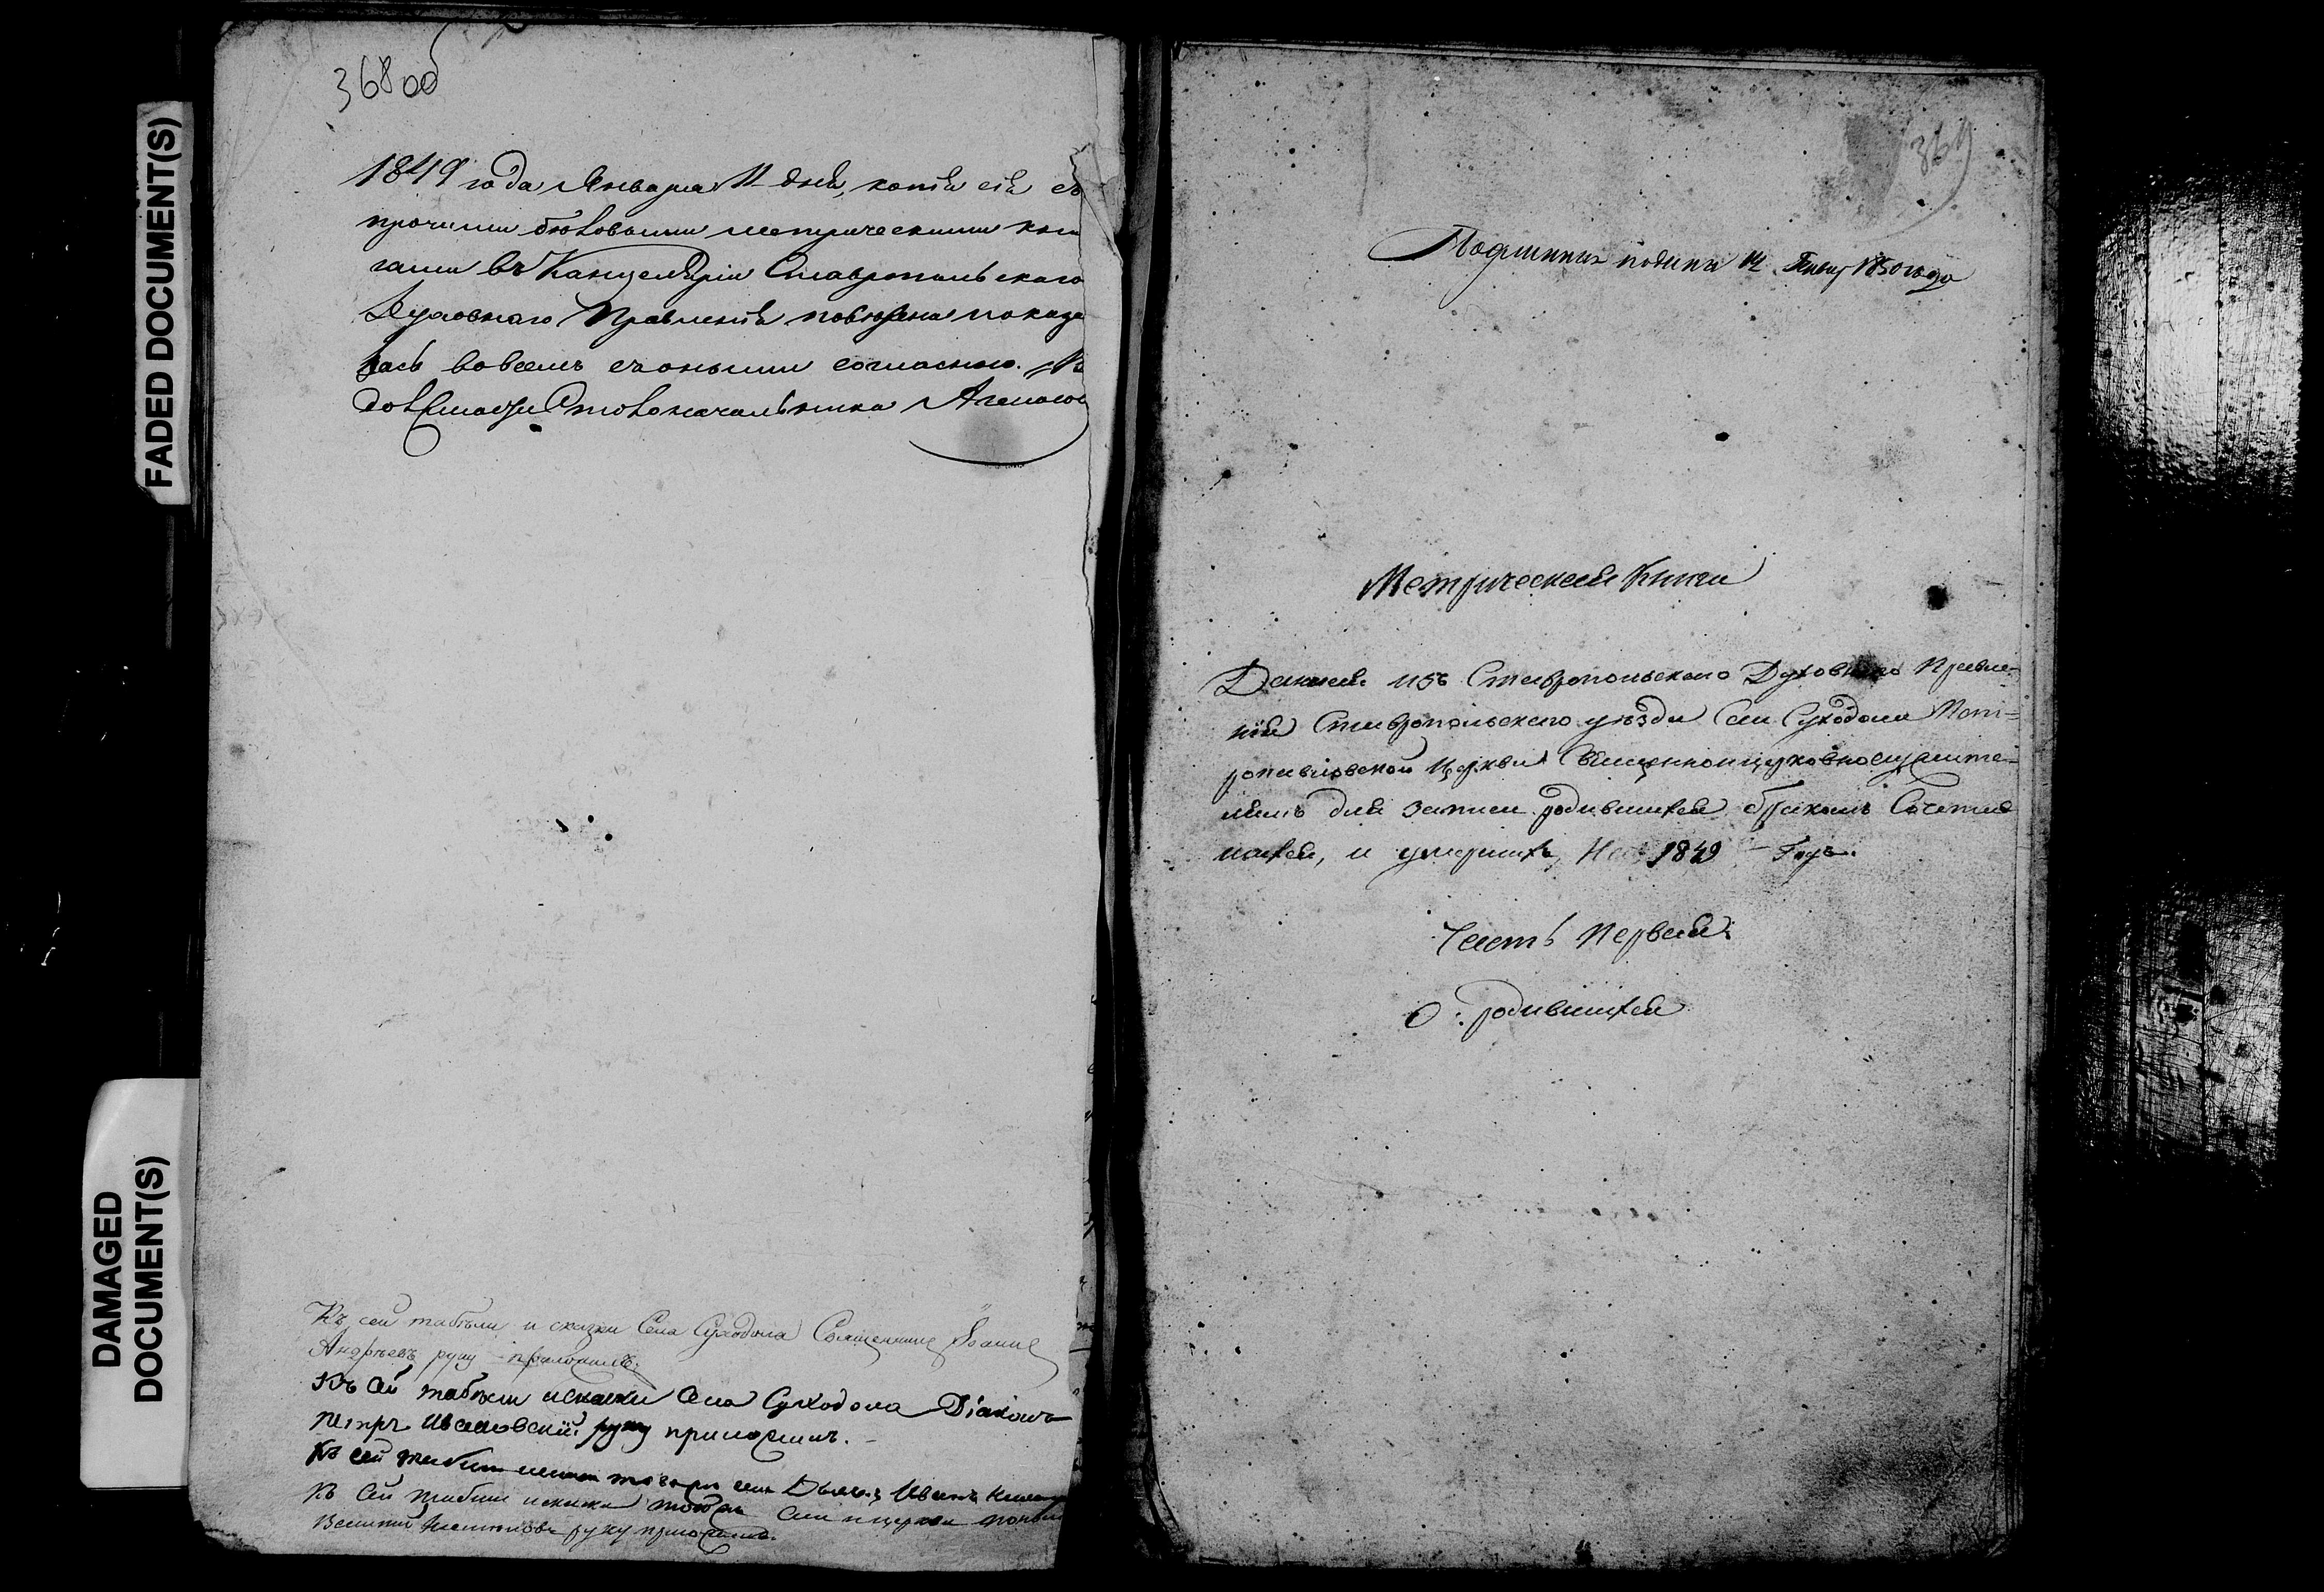 FADED DOCUMENT(S)
DAMAGED
DOCUMENT(S)
368 об
1849 года Января 11 дня, копія сія съ
прочими бѣловыми метрическими кни
гами въ Канцеляріи Ставропольскаго
Духовнаго Правленія повѣрена показа
лась во всемъ съ оными согласною.
Столоначальника
Къ сей табѣли и сказки Села Суходола Священникъ Іоаннъ
Андрѣевъ руку приложилъ.
Къ сей табѣли и сказки Села Суходола Діаконъ
Петръ руку приложилъ.
Къ сей табели тогожъ села Дьячекъ Иванъ
Къ Сей табели и сказки тогожъ Села и церкви
Василій руку приложилъ.
369
Подлинная подана 14 Генвар 1850 года
Метрическая Книга
Данная изъ Ставропольскаго Духовнаго Правле-
нія Ставропольскаго уѣзда Села Суходола Пет=
ропавловской Церкви Священноицерковнослужите-
лямъ для записи родившихся бракомъ Сочетав
шихся, и умершихъ, На 1849 – Годъ.
Часть Первая.
О родившихся